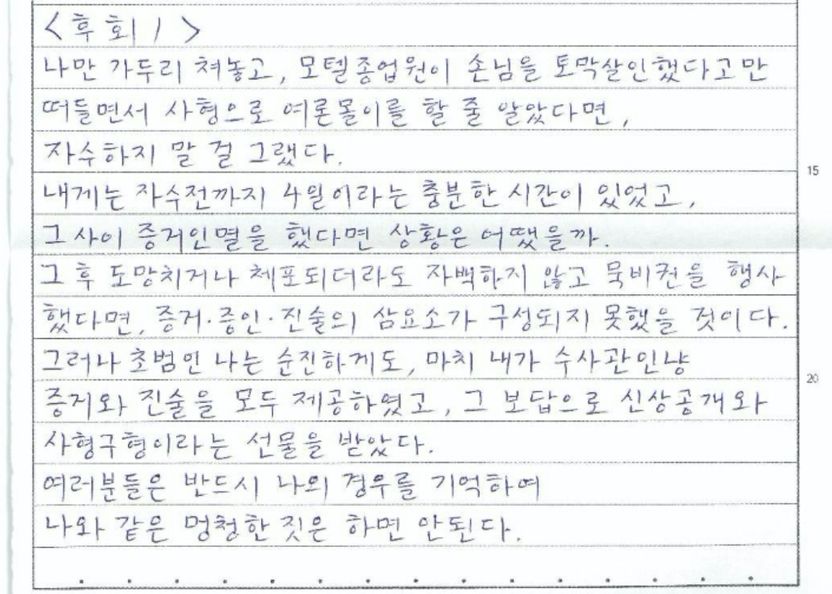 <후회1>
나만 가두리 쳐놓고, 모텔종업원이 손님을 토막살인했다고만
떠들면서 사형으로 여론몰이를 할 줄 알았다면,
자수하지 말 걸 그랬다.
내게는 자수전까지 4일이라는 충분한 시간이 있었고,
그 사이 증거인멸을 했다면 상황은 어땠을까.
그 후 도망치거나 체포되더라도 자백하지 않고 묵비권을 행사
했다면, 증거·증인·진술의 삼요소가 구성되지 못했을 것이다.
그러나 초범인 나는 순진하게도, 마치 내가 수사관인냥
증거와 진술을 모두 제공하였고, 그 보답으로 신상공개와
사형구형이라는 선물을 받았다.
여러분들은 반드시 나의 경우를 기억하여
나와 같은 멍청한 짓은 하면 안된다.
15
20